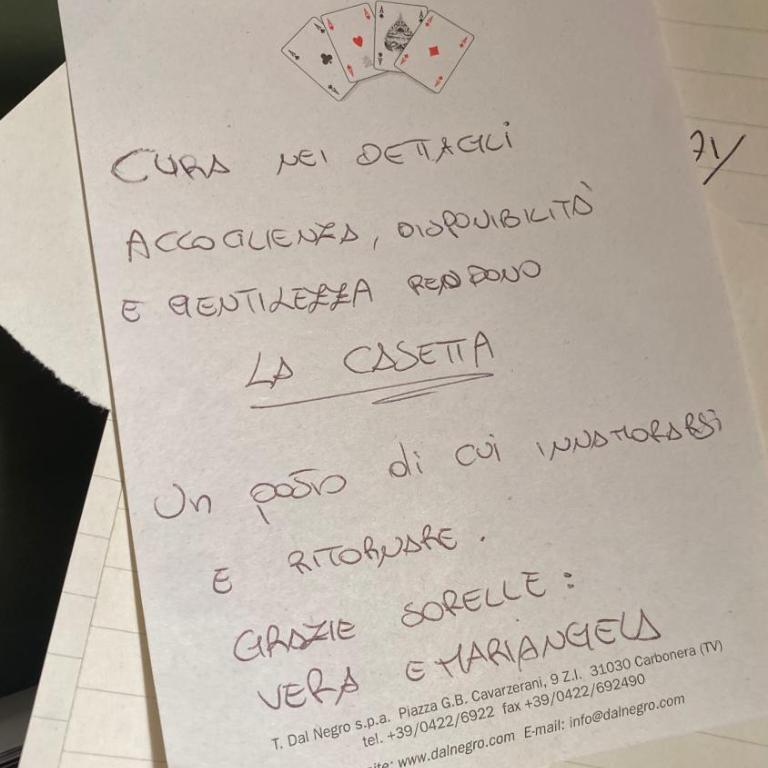 CURA NEI DETTAGLI
71/
ACCOGLIENZA, DISPONIBILITÀ
E GENTILEZZA RENDONO
LA CASETTA
Un posto di cui INNAMORARSI
E RITORNARE.
GRAZIE SORELLE:
VERA E MARIANGELA
T. Dal Negro s.p.a. Piazza G.B. Cavarzerani, 9 Z.I. 31030 Carbonera (TV)
tel. +39/0422/6922 fax +39/0422/692490
www.dalnegro.com E-mail: info@dalnegro.com